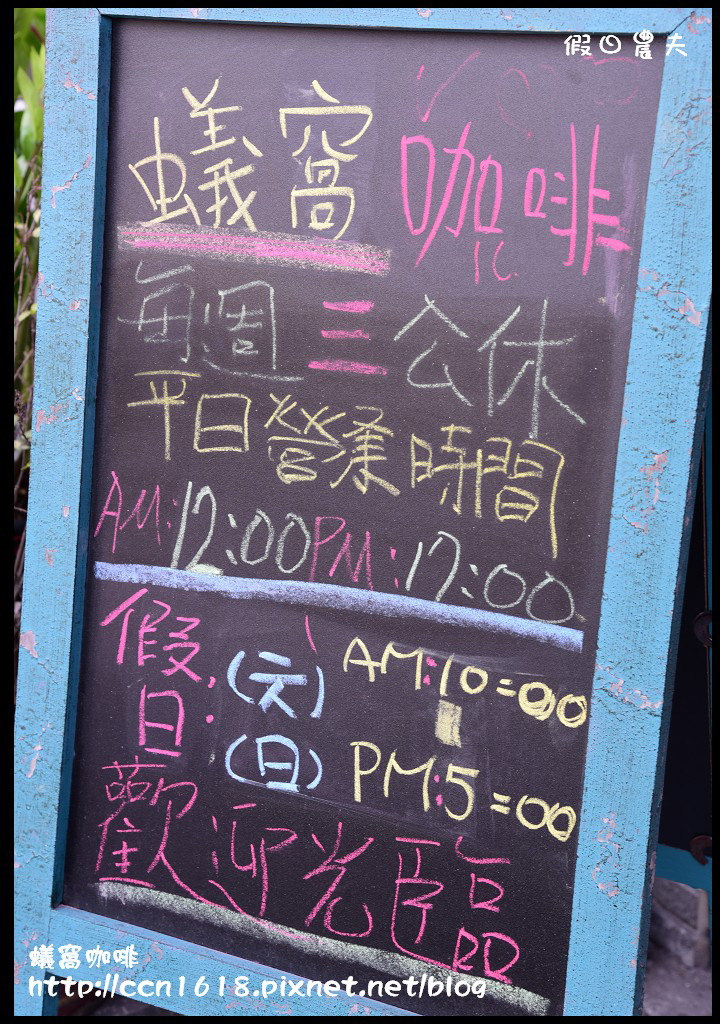 假日農夫
蟻窩 咖啡
每週三公休
平日營業時間
AM:12:00 PM:17:00
假日: (六) AM:10=00
(日) PM:5=00
歡迎光臨
蟻窩咖啡
http://ccn1618.pixnet.net/blog